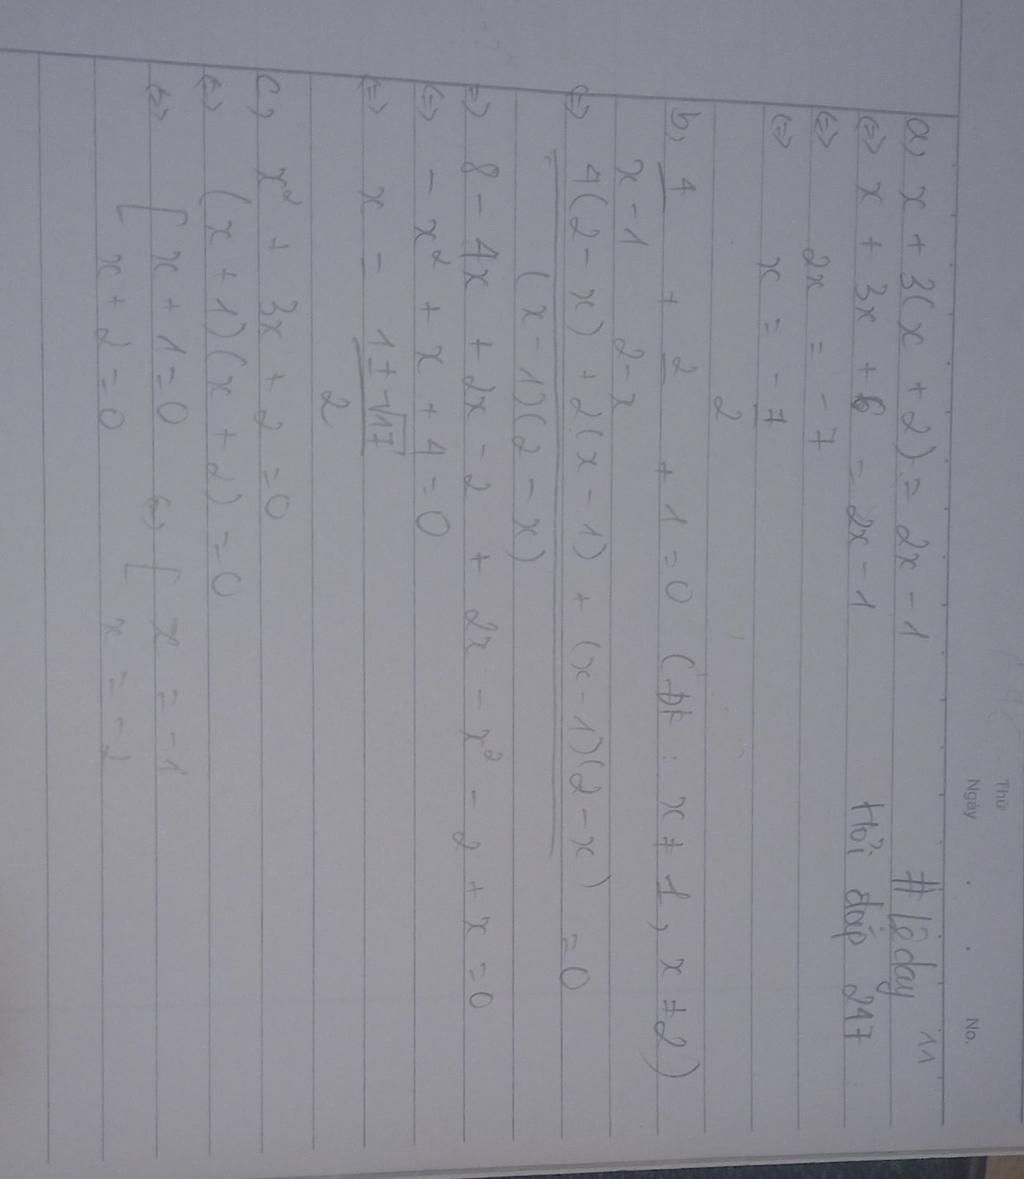 Thứ
Ngày . . No.
a, x + 3(x + 2) = 2x - 1 # lôday 11
<=> x + 3x + 6 = 2x - 1 Hỏi đáp 247
<=> 2x = -7
<=> x = -7/2
b, 4/(x-1) + 2/(2-x) + 1 = 0 (Đk : x ≠ 1, x ≠ 2)
<=> (4(2 - x) + 2(x - 1) + (x - 1)(2 - x))/((x - 1)(2 - x)) = 0
=> 8 - 4x + 2x - 2 + 2x - x² - 2 + x = 0
<=> - x² + x + 4 = 0
<=> x = (1 ± √17)/2
c, x² + 3x + 2 = 0
<=> (x + 1)(x + 2) = 0
<=> [ x + 1 = 0 <=> [ x = -1
x + 2 = 0 x = -2